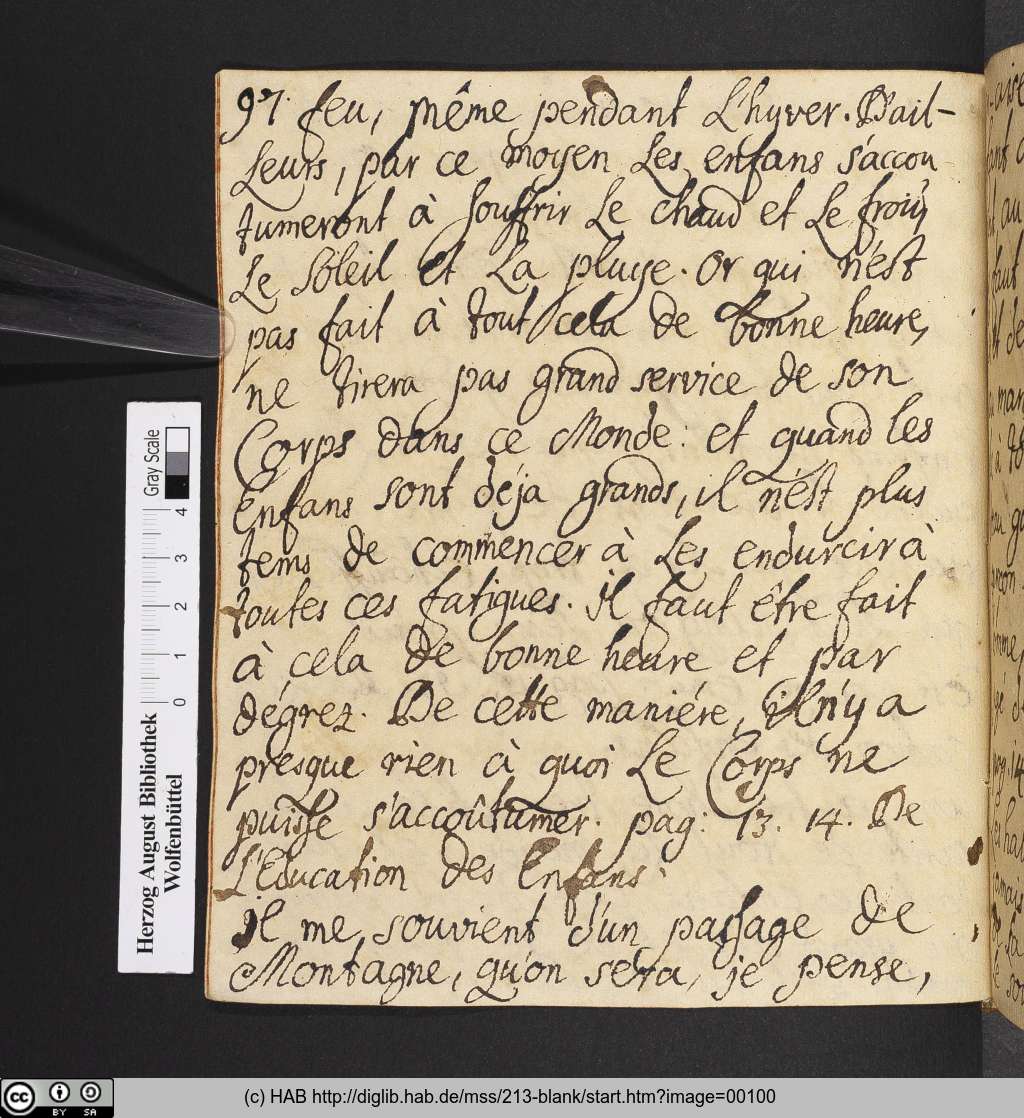 97. feu, même pendant L'hyver. D'ail-
Leurs, par ce moyen Les enfans s'accou
tumeront à souffrir Le chaud et Le froid,
Le Soleil et La pluye. Or qui n'est
pas fait à tout cela de bonne heure,
ne tirera pas grand service de son
Corps dans ce Monde: et quand les
Enfans sont déja grands, il n'est plus
tems de commencer à Les endurcir à
toutes ces fatigues. il faut être fait
à cela de bonne heure et par
dégrez. De cette maniére, il n'y a
presque rien à quoi Le Corps ne
puisse s'accoûtumer. pag: 13. 14. De
L'Education des Enfans.
il me souvient d'un passage de
Montagne, qu'on sera, je pense,
Gray Scale
4
3
2
1
0
Herzog August Bibliothek
Wolfenbüttel
cc BY SA
(c) HAB http://diglib.hab.de/mss/213-blank/start.htm?image=00100